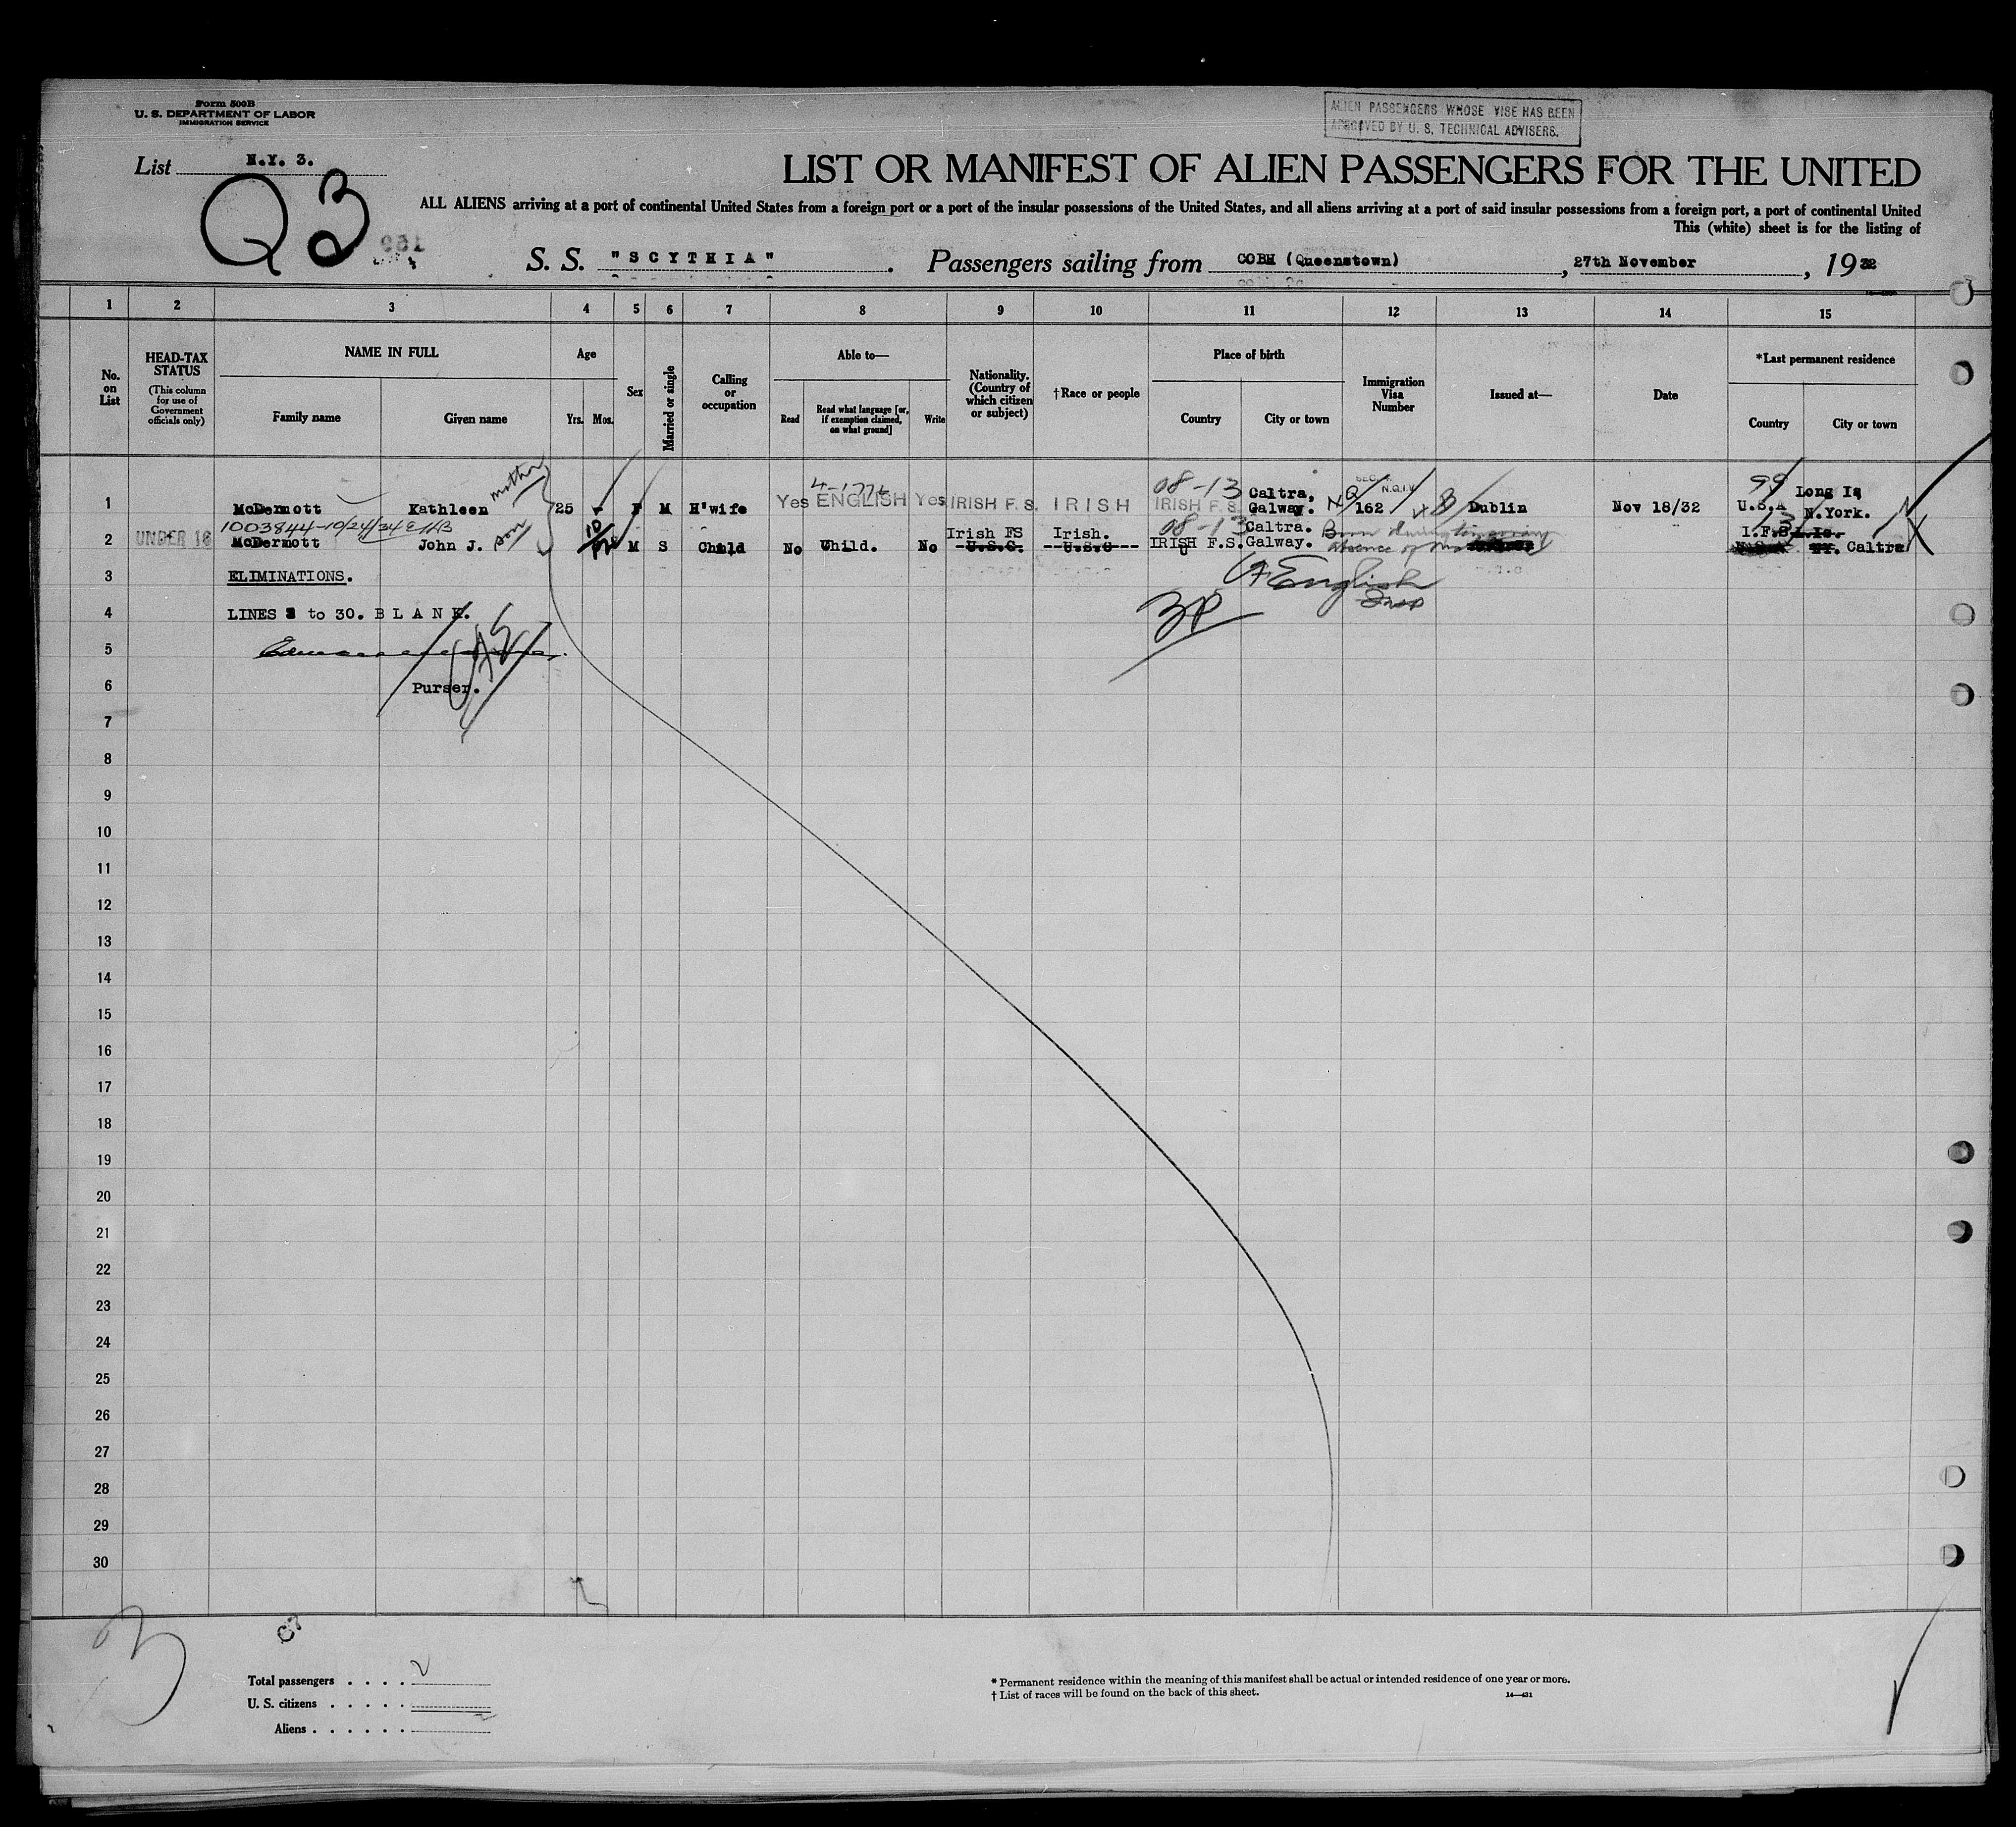 Form 500B
U. S. DEPARTMENT OF LABOR
IMMIGRATION SERVICE
ALIEN PASSENGERS WHOSE VISE HAS BEEN
APPROVED BY U. S. TECHNICAL ADVISERS.
List N.Y. 3.
Q3
LIST OR MANIFEST OF ALIEN PASSENGERS FOR THE UNITED
ALL ALIENS arriving at a port of continental United States from a foreign port or a port of the insular possessions of the United States, and all aliens arriving at a port of said insular possessions from a foreign port, a port of continental United
This (white) sheet is for the listing of
S. S. "SCYTHIA". Passengers sailing from COBH (Queenstown), 27th November, 1932
1 2 3 4 5 6 7 8 9 10 11 12 13 14 15
No. on List
HEAD-TAX STATUS
(This column for use of Government officials only)
NAME IN FULL
Family name Given name
Age
Yrs. Mos.
Sex
Married or single
Calling or occupation
Able to—
Read
Read what language [or, if exemption claimed, on what ground]
Write
Nationality. (Country of which citizen or subject)
†Race or people
Place of birth
Country City or town
Immigration Visa Number
Issued at—
Date
*Last permanent residence
Country City or town
mother
4-1774
08-13
SEC. 4
N.Q.I.V.
99
1 McDermott Kathleen 25 F M H'wife Yes ENGLISH Yes IRISH F.S. IRISH IRISH F.S. Caltra, Galway. NQ 162 Dublin Nov 18/32 U.S.A Long Is N.York.
1003844-10/24/34
son
08-13
2 UNDER 16 McDermott John J. 10/12 M S Child No Child. No Irish FS U.S.C. Irish. U.S.C IRISH F.S. Caltra. Galway. Born during temporary absence of I.F.S. NY. Caltra
3 ELIMINATIONS. English
4 LINES 3 to 30. BLANK.
5
6 Purser.
7
8
9
10
11
12
13
14
15
16
17
18
19
20
21
22
23
24
25
26
27
28
29
30
3
Total passengers . . . . 2
U. S. citizens . . . . .
Aliens . . . . . . 2
* Permanent residence within the meaning of this manifest shall be actual or intended residence of one year or more.
† List of races will be found on the back of this sheet.
14—431